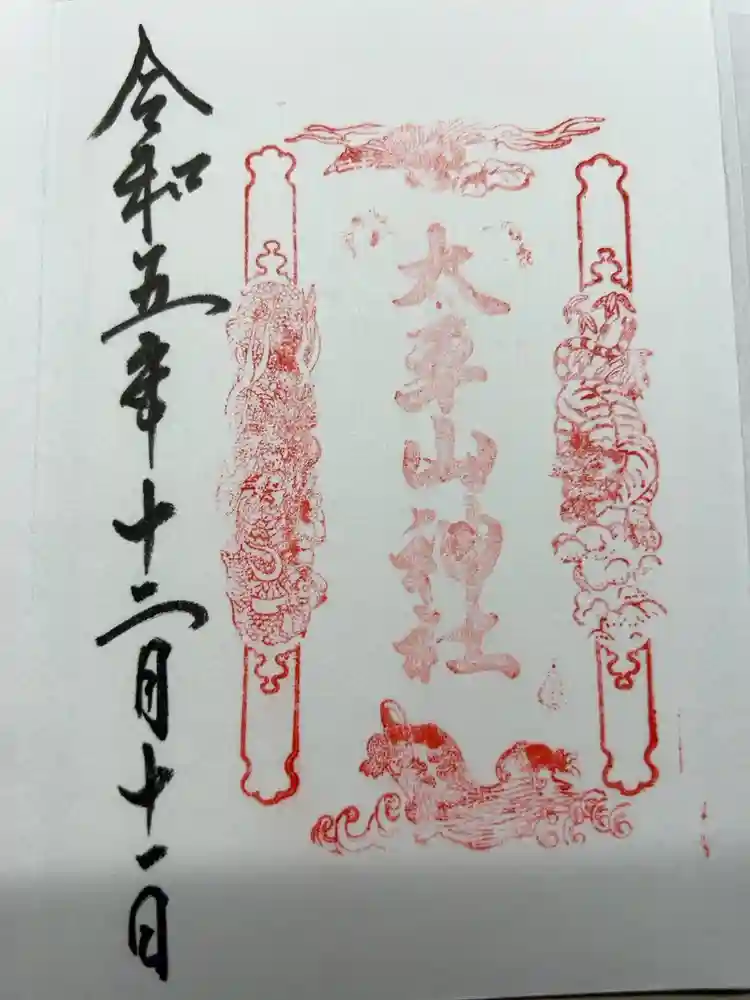 太平山神社
令和五年十二月十一日